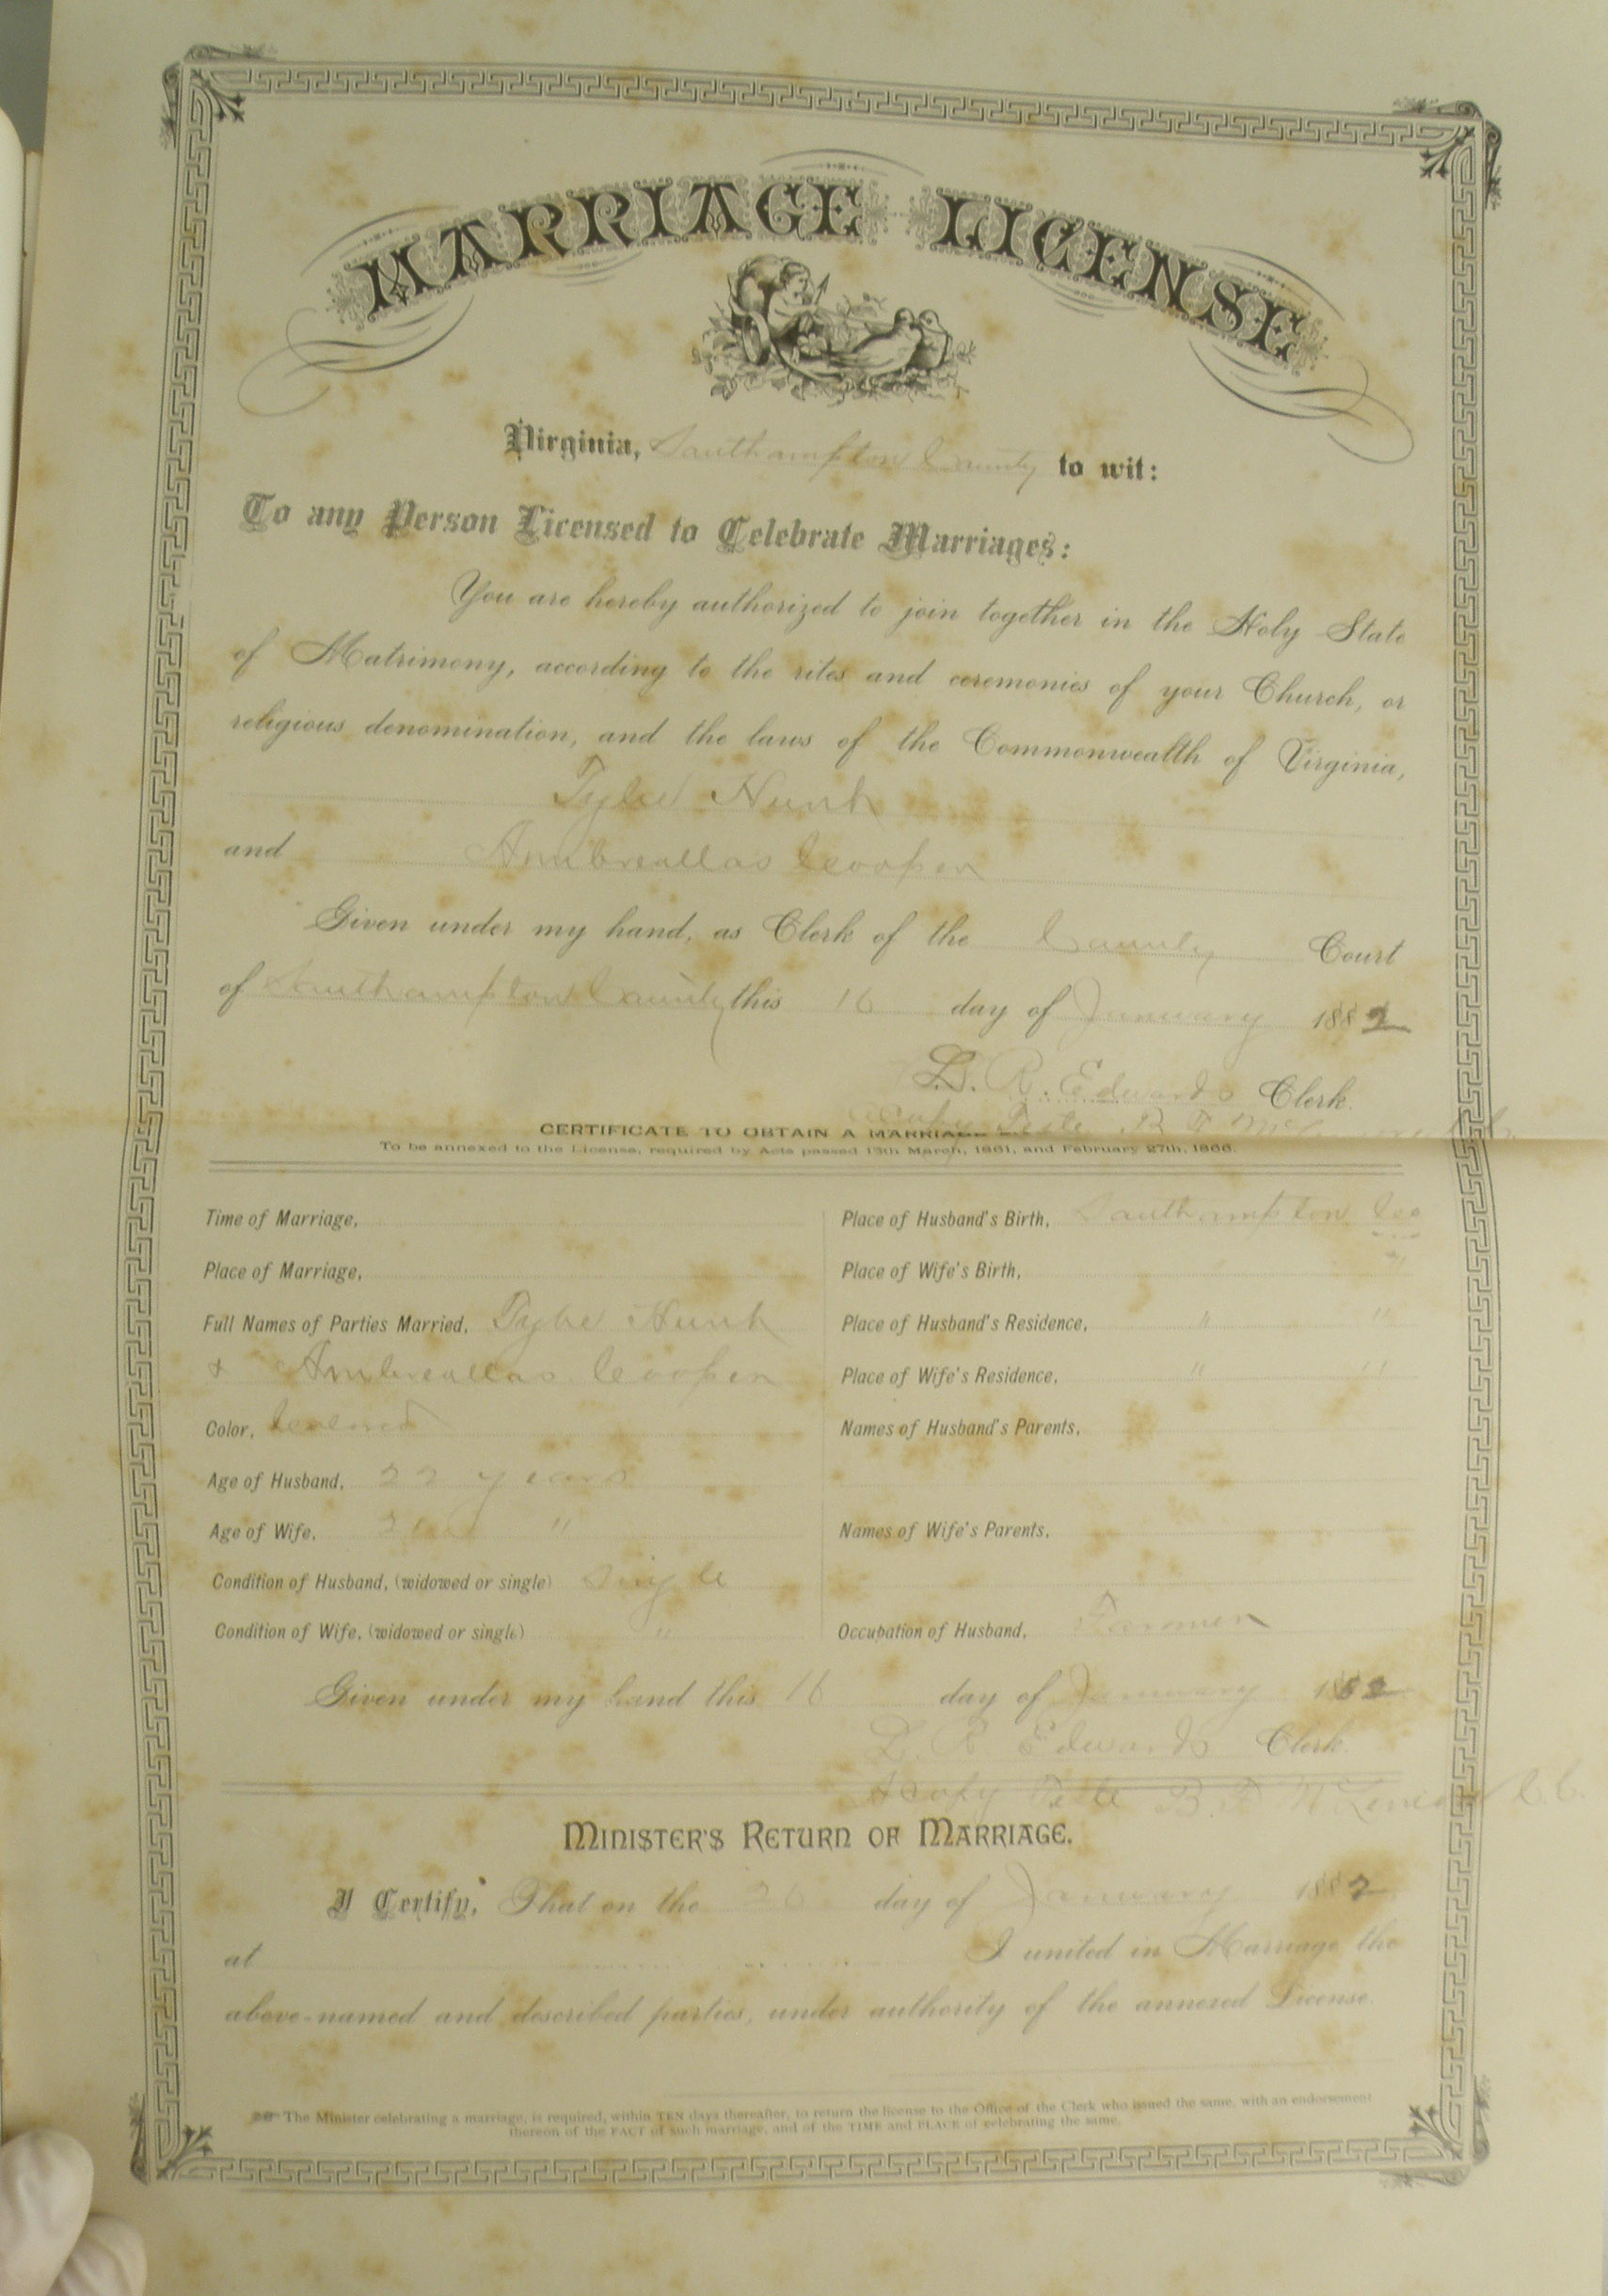 MARRIAGE LICENSE
Virginia, Southampton County to wit:
To any Person Licensed to Celebrate Marriages:
You are hereby authorized to join together in the Holy State
of Matrimony, according to the rites and ceremonies of your Church, or
religious denomination, and the laws of the Commonwealth of Virginia,
Hunt
and Ambreallas Cooper
Given under my hand, as Clerk of the County Court
of Southampton County this 16 day of January 1882
L. R. Edwards Clerk.
A Copy Teste B F
CERTIFICATE TO OBTAIN A MARRIAGE
To be annexed to the License, required by Acts passed 15th March, 1861, and February 27th, 1866.
Time of Marriage,
Place of Marriage,
Full Names of Parties Married, Hunt
& Ambreallas Cooper
Color, Colored
Age of Husband, 22 years
Age of Wife, 21 "
Condition of Husband, (widowed or single) Single
Condition of Wife, (widowed or single) "
Place of Husband's Birth, Southampton Co
Place of Wife's Birth, "
Place of Husband's Residence, " "
Place of Wife's Residence, " "
Names of Husband's Parents,
Names of Wife's Parents,
Occupation of Husband, Farmer
Given under my hand this 16 day of January 1882
L. R. Edwards Clerk.
A Copy Teste B. F. C.C.
MINISTER'S RETURN OF MARRIAGE.
I Certify, That on the 26 day of January 1882
at I united in Marriage the
above-named and described parties, under authority of the annexed License.
The Minister celebrating a marriage, is required, within TEN days thereafter, to return the license to the Office of the Clerk who issued the same, with an endorsement
thereon of the FACT of such marriage, and of the TIME and PLACE of celebrating the same.